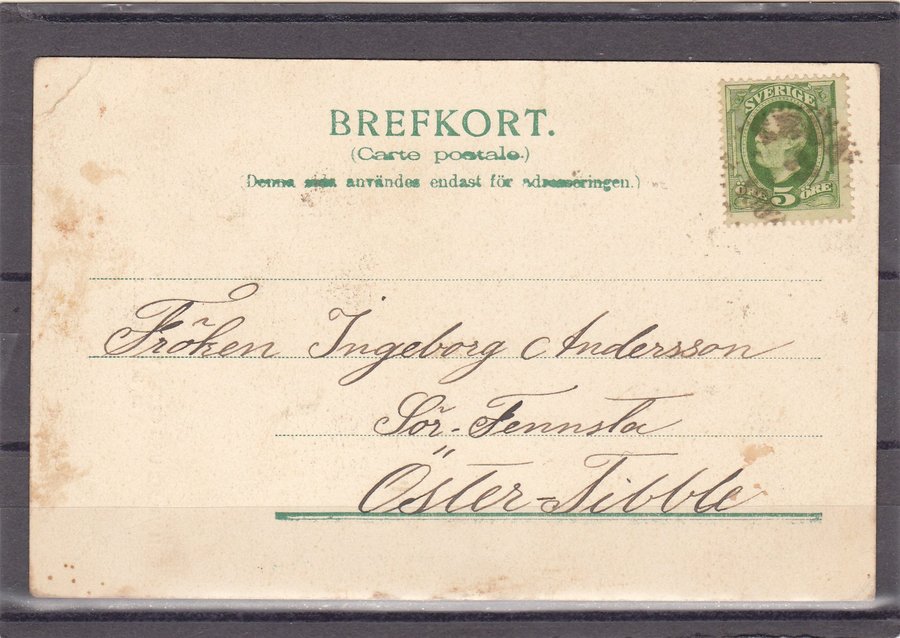 BREFKORT.
(Carte postale.)
(Denna sida användes endast för adresseringen.)
SVERIGE
5 ÖRE
Fröken Ingeborg Andersson
Sör-Fennsta
Öster=Tibble